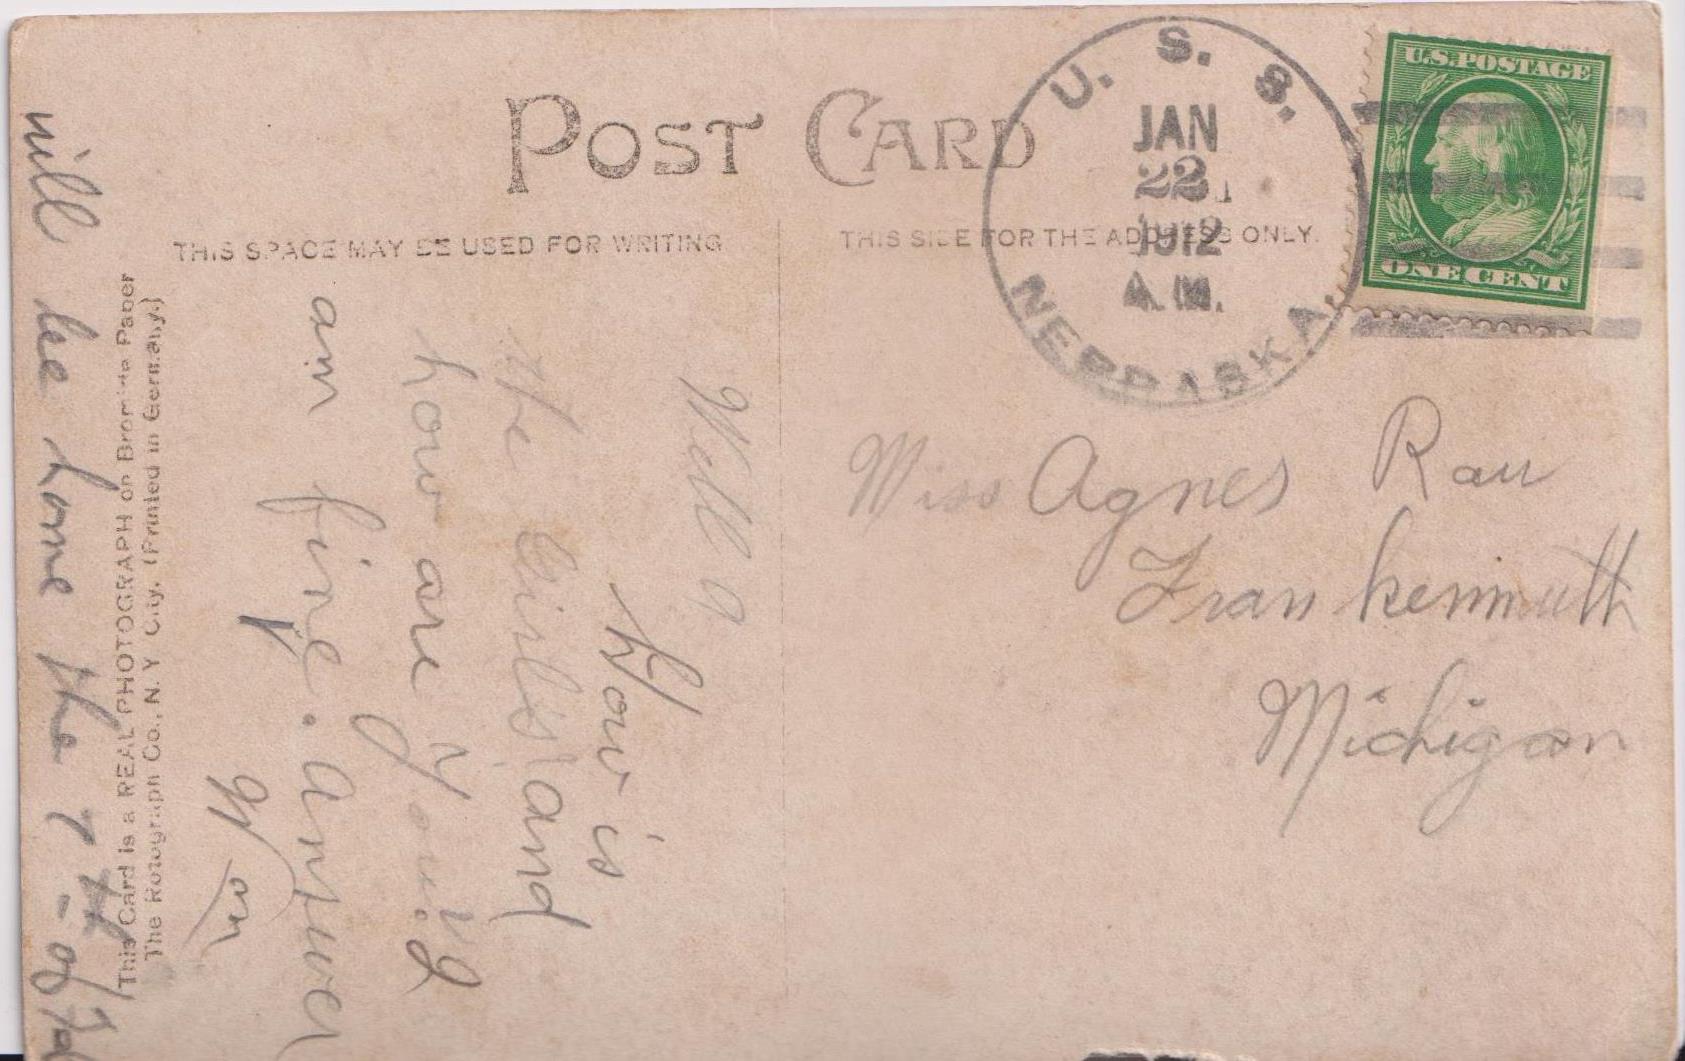 POST CARD
THIS SPACE MAY BE USED FOR WRITING
THIS SIDE FOR THE ADDRESS ONLY.
U. S. S.
JAN
22
1912
A.M.
NEBRASKA.
U.S.POSTAGE
ONE CENT
Miss Agnes Rau
Frankenmuth
Michigan
Well
How is
the Girls and
how are you. I
am fine. answer
will be home the 7th of
This Card is a REAL PHOTOGRAPH on Bromide Paper
The Rotograph Co., N. Y City. (Printed in Germany.)